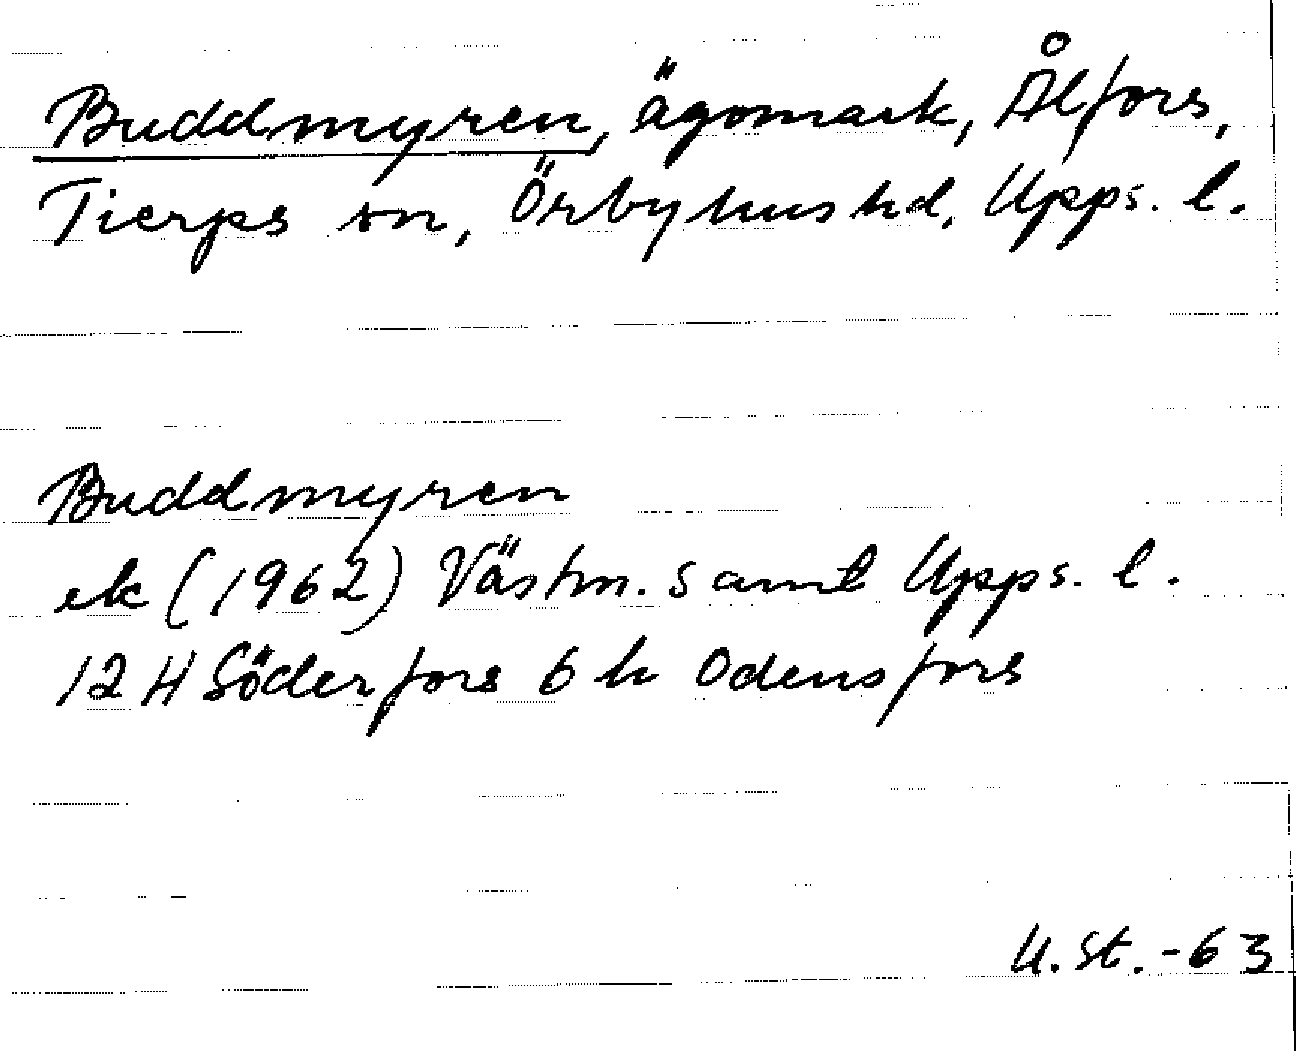 Buddmyren, ägomark, Ålfors,
Tierps sn, Örbyhus hd, Upps. l.
Buddmyren
ek (1962) Västm. samt Upps. l.
12 H Söderfors 6 h Odensfors
U. St. -63